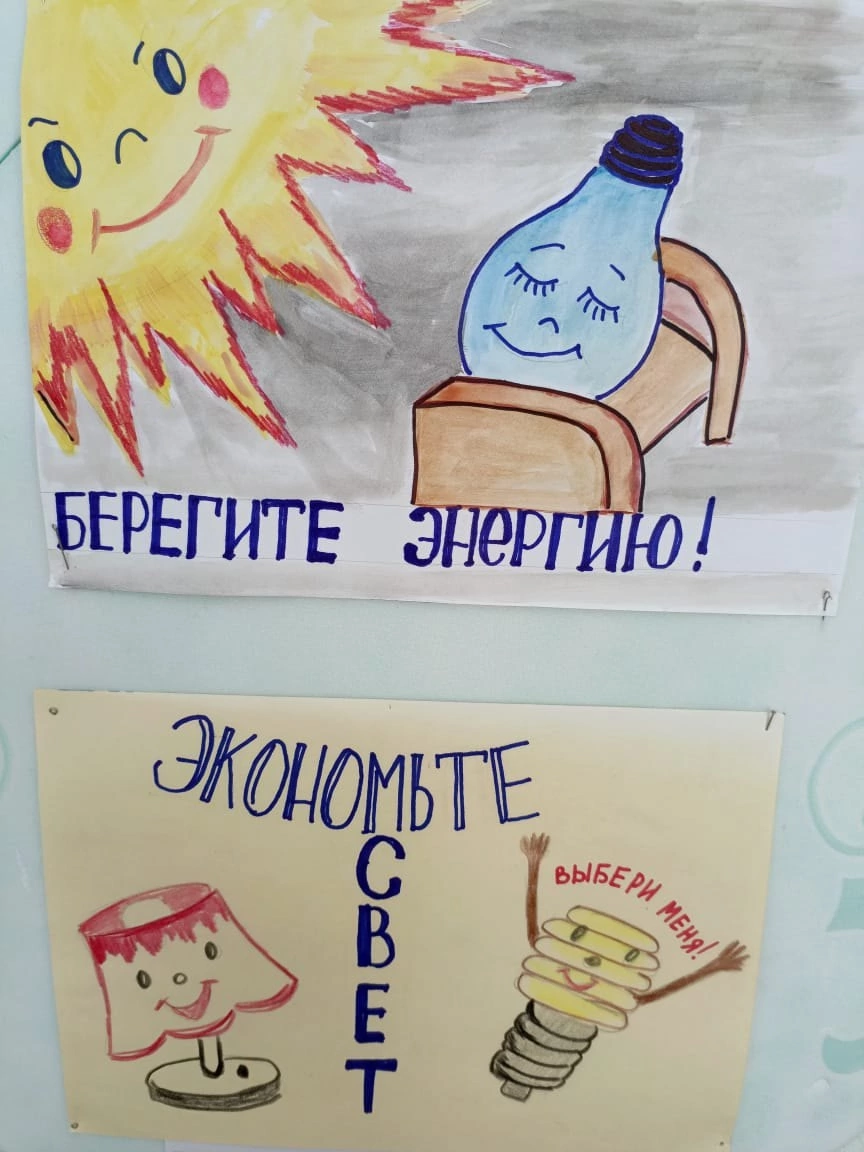 БЕРЕГИТЕ ЭНЕРГИЮ!
ЭКОНОМЬТЕ
СВЕТ
ВЫБЕРИ МЕНЯ!